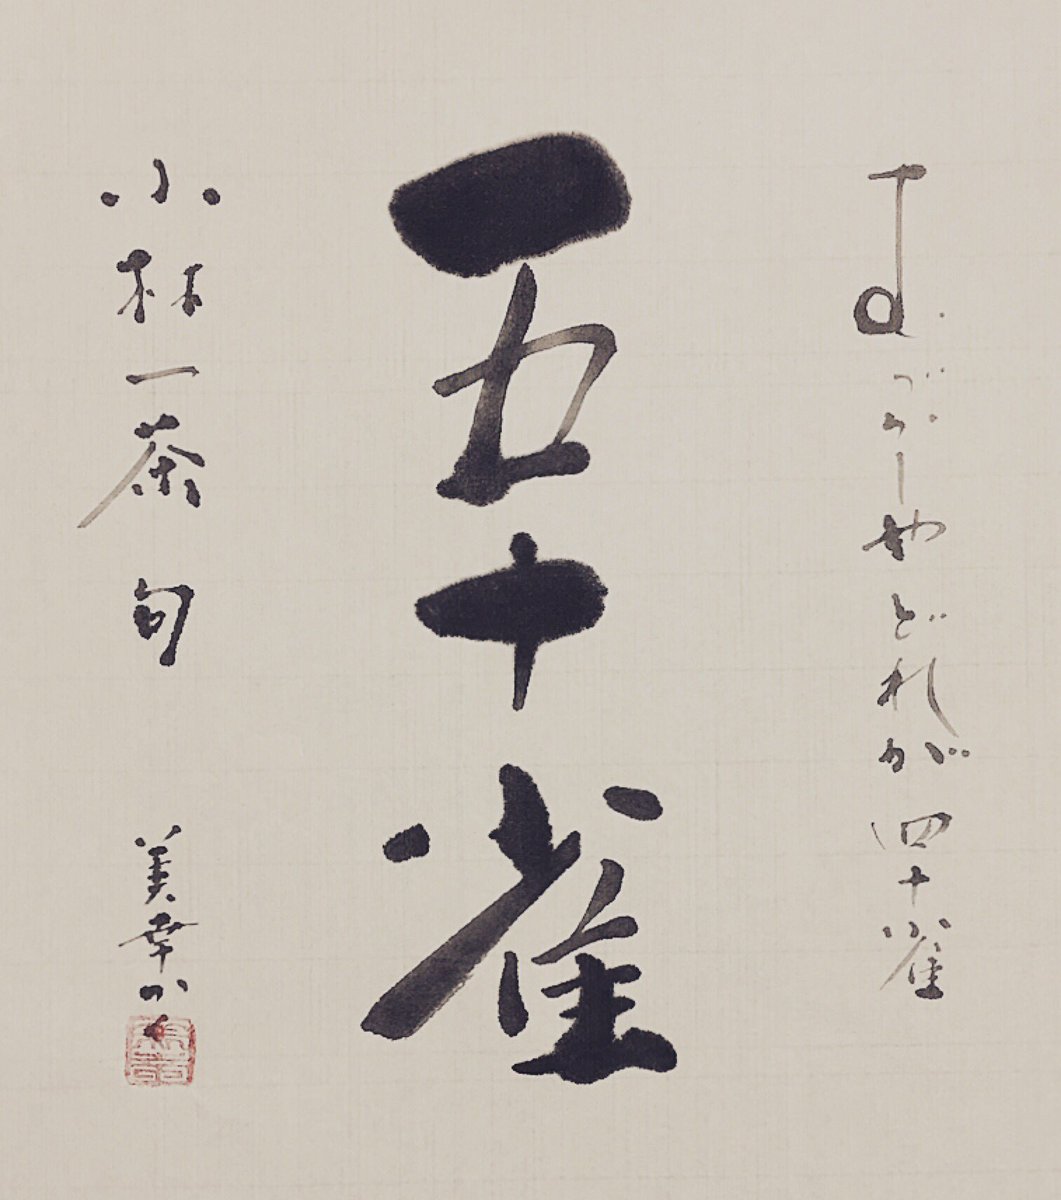 むづかしやどれが四十雀
五十雀
小林一茶句
美幸